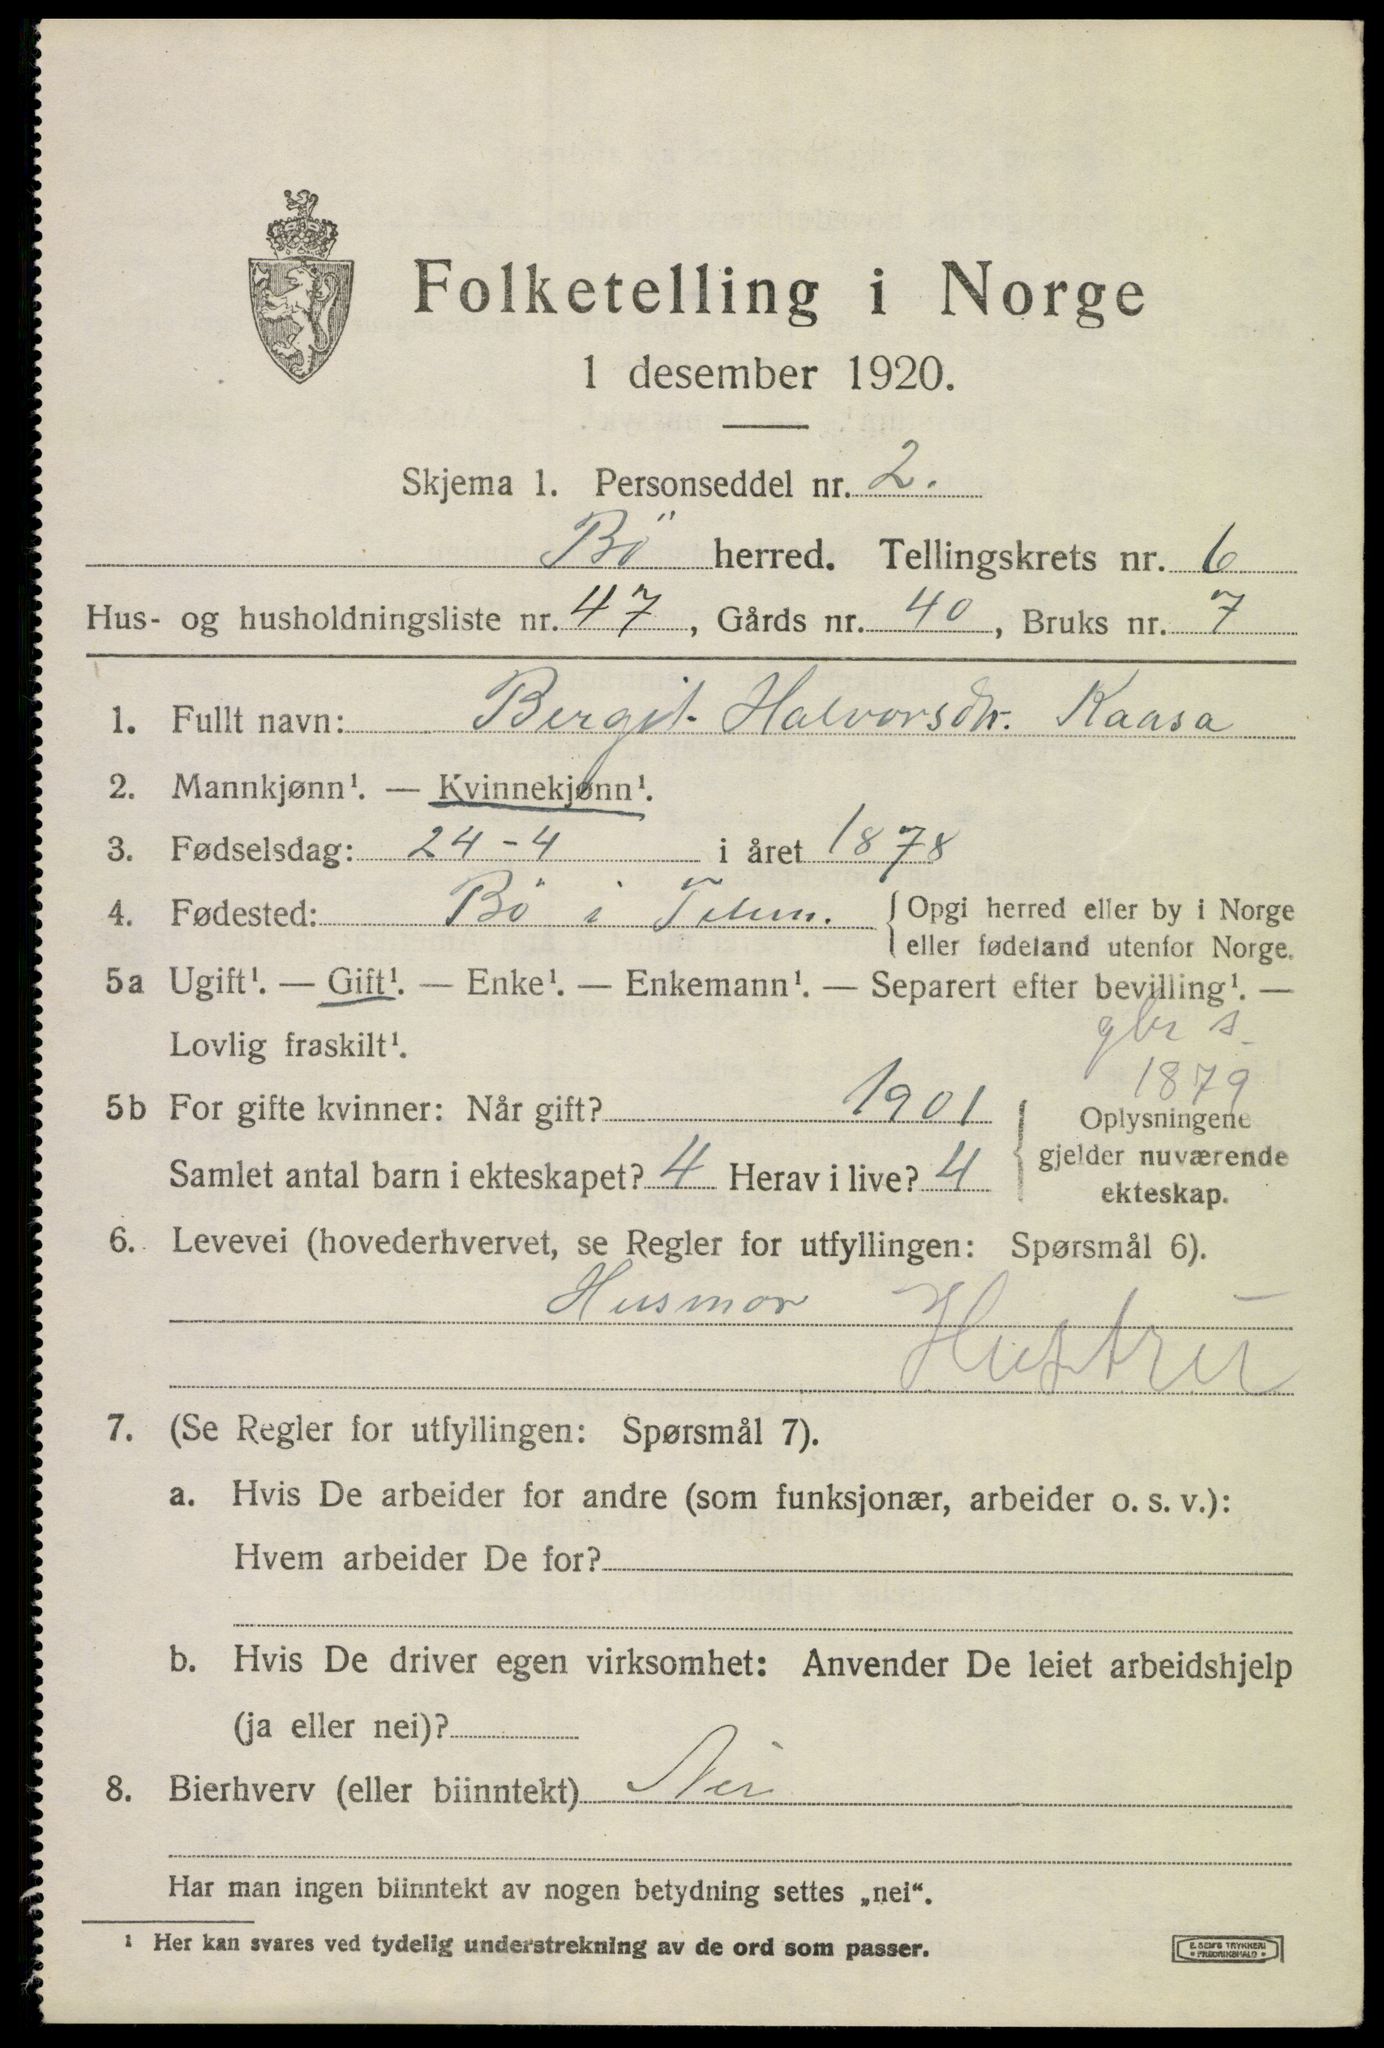 Folketelling i Norge
1 desember 1920.
Skjema 1. Personseddel nr. 2.
Bö herred. Tellingskrets nr. 6
Hus- og husholdningsliste nr. 47, Gårds nr. 40, Bruks nr. 7
1. Fullt navn: Bergit Halvorsdtr. Kaasa
2. Mannkjønn¹. — Kvinnekjønn¹.
3. Fødselsdag: 24-4 i året 1878
4. Fødested: Bö i Telem. { Opgi herred eller by i Norge
eller fødeland utenfor Norge.
5a Ugift¹. — Gift¹. — Enke¹. — Enkemann¹. — Separert efter bevilling¹. —
Lovlig fraskilt¹.
gbr s.
1879
5b For gifte kvinner: Når gift? 1901
Samlet antal barn i ekteskapet? 4 Herav i live? 4
{ Oplysningene
gjelder nuværende
ekteskap.
6. Levevei (hovederhvervet, se Regler for utfyllingen: Spørsmål 6).
Husmor Hustru
7. (Se Regler for utfyllingen: Spørsmål 7).
a. Hvis De arbeider for andre (som funksjonær, arbeider o. s. v.):
Hvem arbeider De for?
b. Hvis De driver egen virksomhet: Anvender De leiet arbeidshjelp
(ja eller nei)?
8. Bierhverv (eller biinntekt) Nei
Har man ingen biinntekt av nogen betydning settes „nei“.
¹ Her kan svares ved tydelig understrekning av de ord som passer.
E. SEM'S TRYKKERI
• FREDRIKSHALD •